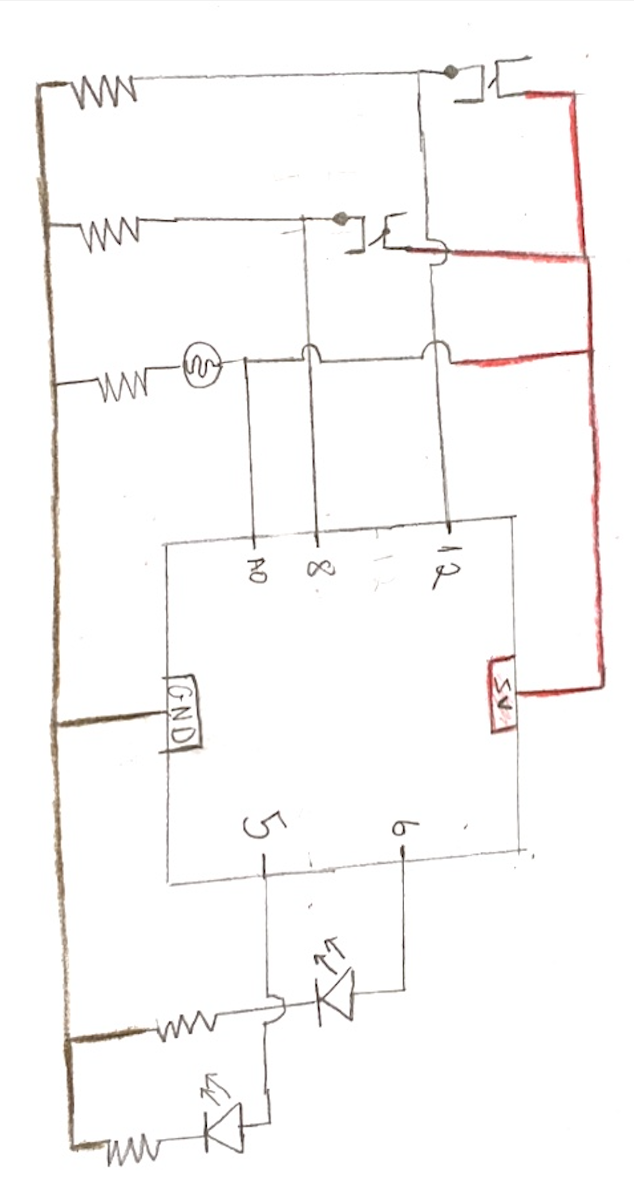 A0
8
12
GND
5V
5
6